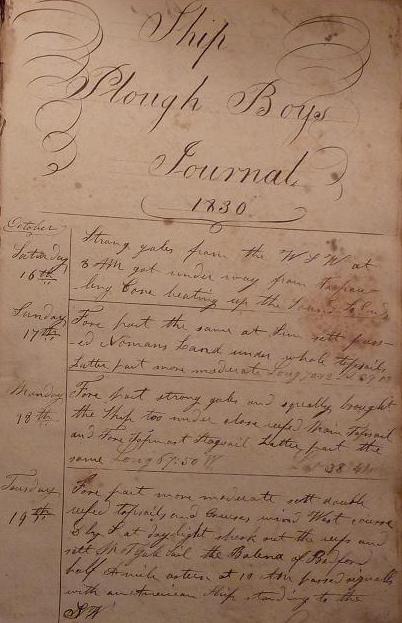 Ship
Plough Boys
Journal
1830
October
Saturday
16th
Strong gales from the WSW at
8 AM got under way from Tarpau-
ling Cove beating up the Sound
Sunday
17th
Fore part the same at Sun sett pass-
ed Nomans Land under whole topsails
Latter part more moderate Long
Monday
18th
Fore part strong gales and squally brought
the Ship too under close reefed Main Topsail
and Fore Topmast Staysail Latter part the
same Long 67:50 W 38
Tuesday
19th
Fore part more moderate sett double
reefed topsails and Courses wind West course
S by E at daylight shook out the reefs and
sett the sail the Balena of Bedford
half a mile astern at 10 AM passed signals
with an American Ship standing to the